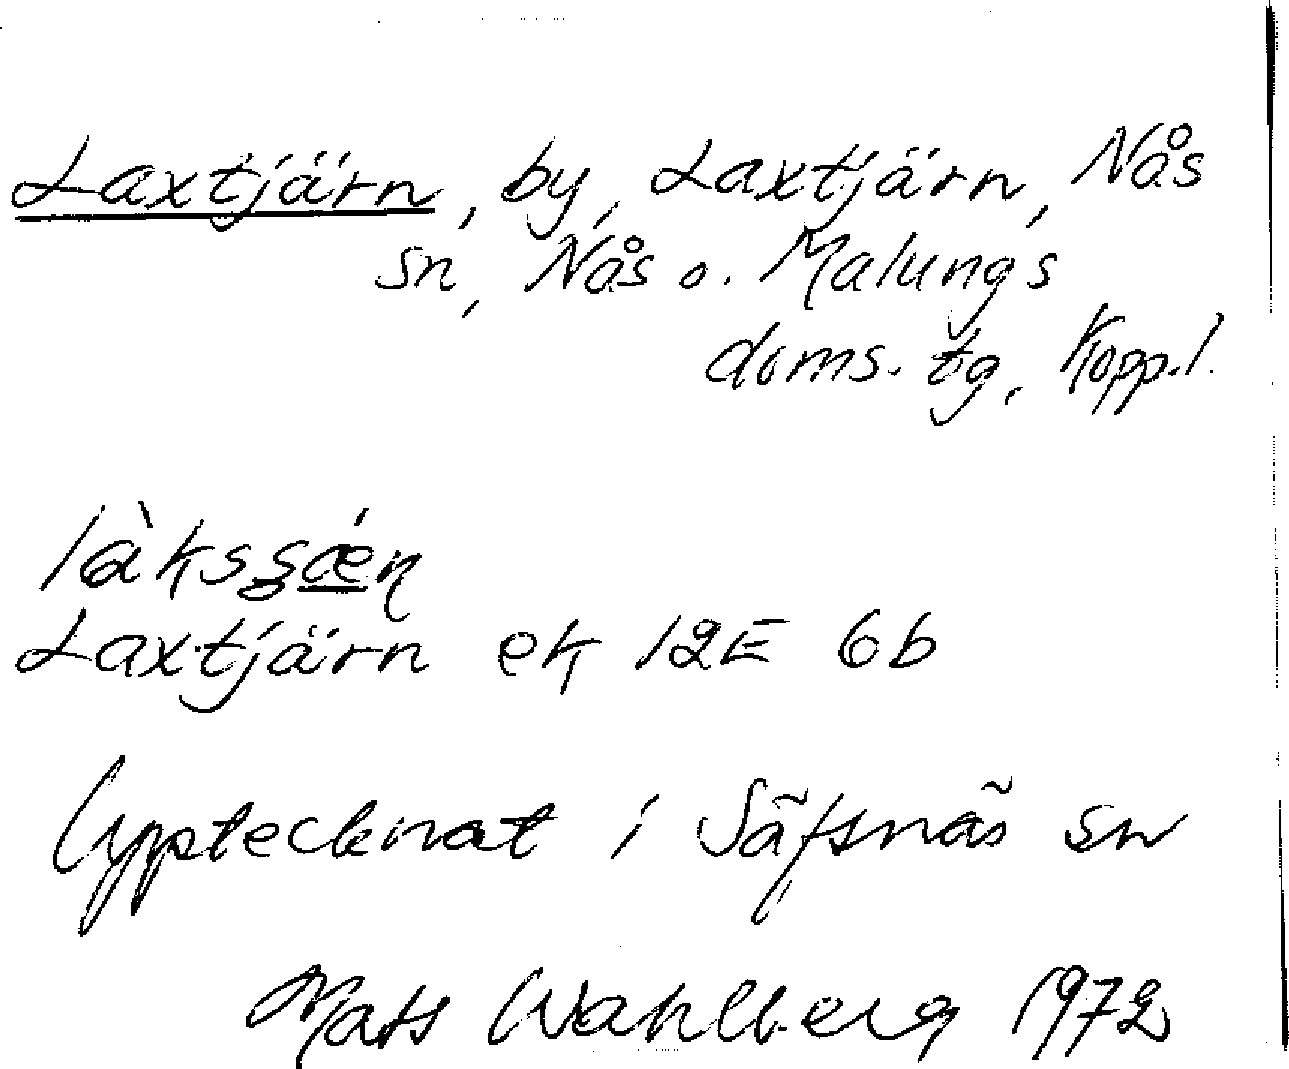 Laxtjärn, by, Laxtjärn, Nås
sn, Nås o. Malungs
doms. tg, Kopp.l.
làksʂǽn
Laxtjärn ek 12E 6b
Upptecknat i Säfsnäs sn
Mats Wahlberg 1972